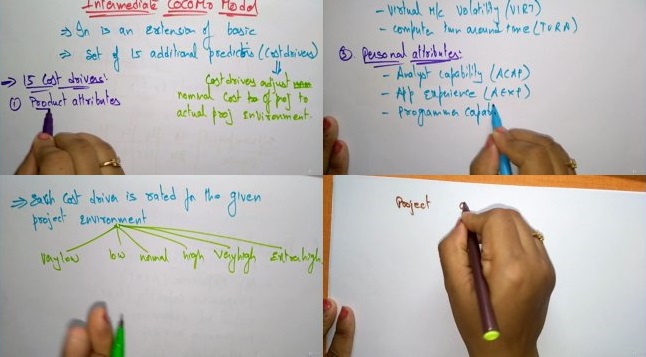 Intermediate COCOMO Model
⇒ In is an extension of basic
⇒ Set of 15 additional predictors (Cost drivers)
Cost drivers adjust
nominal Cost of proj to
actual proj Environment.
→ 15 Cost drivers:
① Product attributes
- Virtual M/c Volatility (VIRT)
- compute turn around time (TURA)
③ Personal attributes:
- Analyst capability (ACAP)
- App Experience (AEXP)
- Programmer Capab
⇒ Each Cost driver is rated for the given
project Environment
Very low low nominal high Very high Extra high
Project